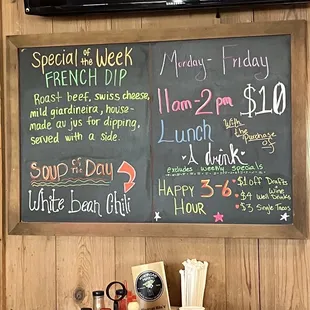 Special of the Week
FRENCH DIP
Roast beef, swiss cheese,
mild giardineira, house-
made au jus for dipping,
served with a side.
SOUP of the DAY
White bean Chili
Monday - Friday
11am-2pm $10
Lunch with the purchase of
1 drink
excludes weekly specials
HAPPY HOUR 3-6
$1 off Drafts + Wine
$4 Well Drinks
$3 Single Tacos